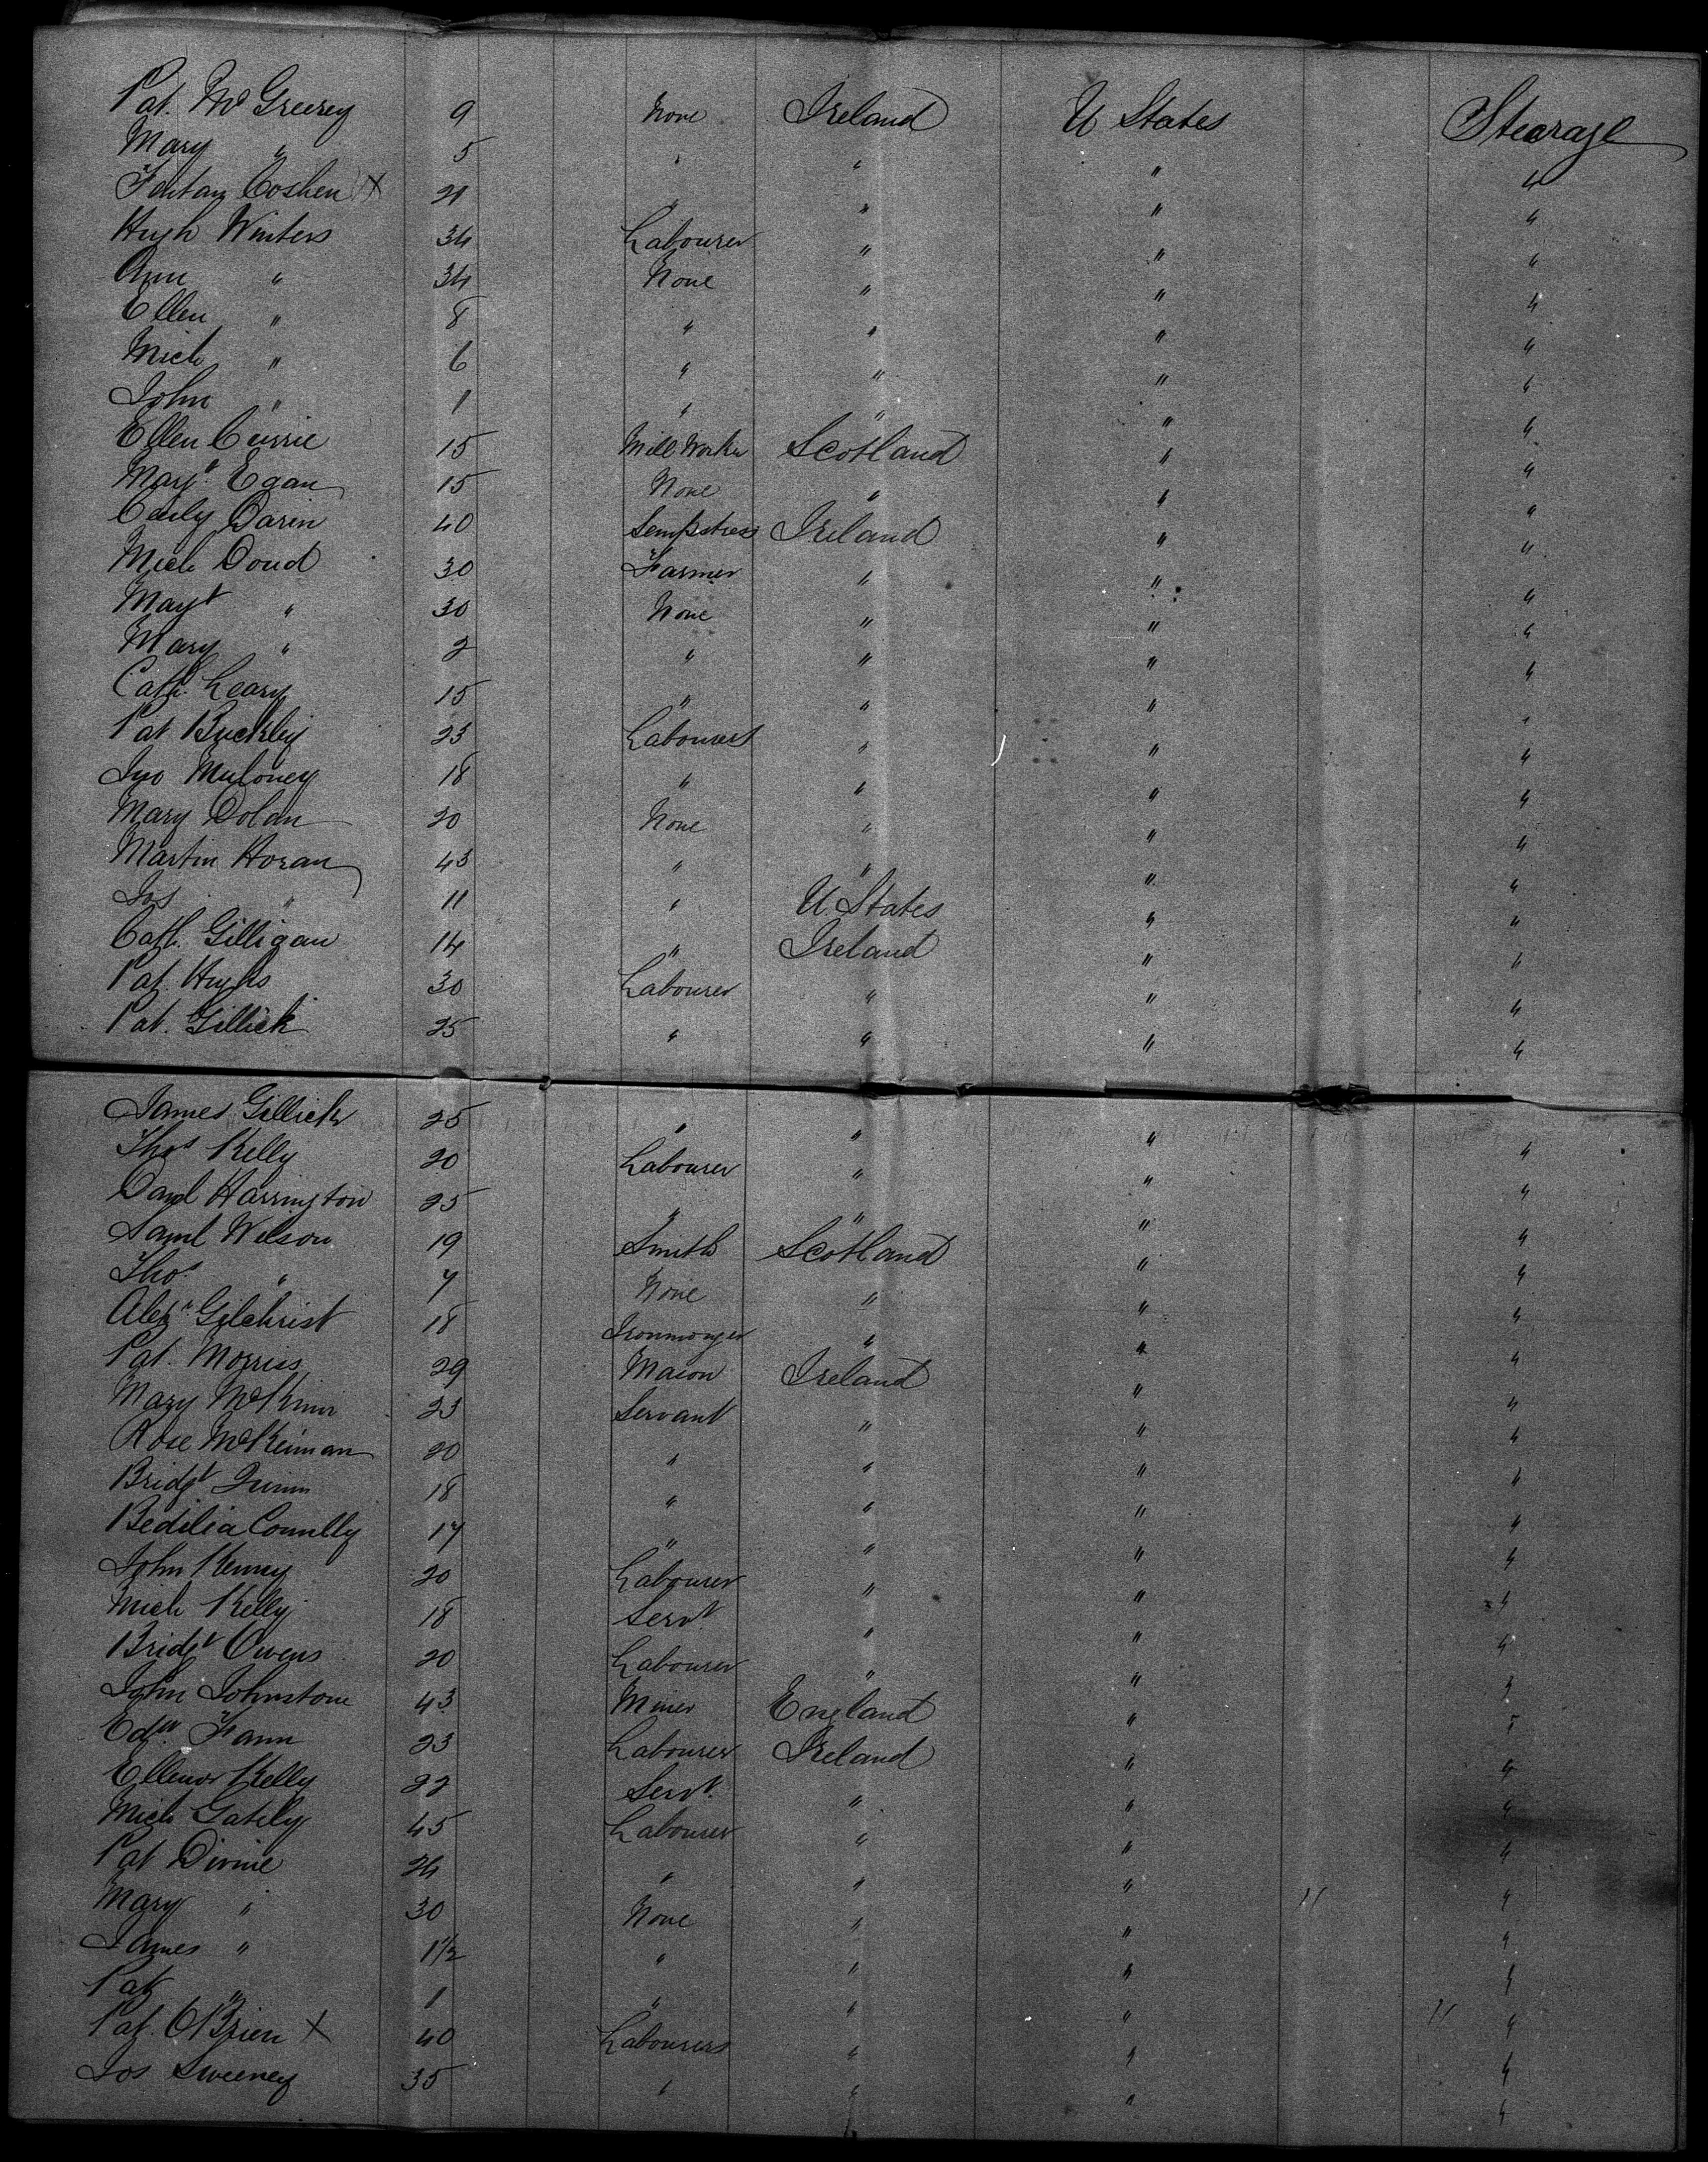 Pat. McGreevy 9 None Ireland U States Stearage
Mary " 5 " " " "
Fentan Coshen X 21 " " " "
Hugh Winters 34 Labourer " " "
Ann " 34 None " " "
Ellen " 8 " " " "
Mich " 6 " " " "
John " 1 " " " "
Ellen Currie 15 Mill Worker Scotland " "
Mary Egan 15 None " " "
Cecily Darin 40 Sempstress Ireland " "
Mich Doud 30 Farmer " " "
Mayt " 30 None " " "
Mary " 2 " " " "
Cath. Leary 15 " " " "
Pat Buckley 23 Labourers " " "
Jno Muloney 18 " " " "
Mary Dolan 20 None " " "
Martin Horan 43 " " " "
Jos " 11 " U. States " "
Cath. Gilligan 14 " Ireland " "
Pat. Hughs 30 Labourer " " "
Pat. Gillick 25 " " " "
James Gillick 25 " " " "
Thos Kelly 20 Labourer " " "
Danl Harrington 25 " " " "
Saml Wilson 19 Smith Scotland " "
Thos. " 7 None " " "
Alexr Gilchrist 18 Ironmonger " " "
Pat. Morriss 29 Mason Ireland " "
Mary 23 Servant " " "
Rose McKeirnan 20 " " " "
Bridgt Quinn 18 " " " "
Bedilia Connlly 17 " " " "
John Kenny 20 Labourer " " "
Mich Kelly 18 Servt " " "
Bridgt Owens 20 Labourer " " "
John Johnstone 43 Miner England " "
Edwd. Fann 23 Labourer Ireland " "
Ellenor Kelly 22 Servt. " " "
Mich Gately 45 Labourer " " "
Pat Divine 24 " " " "
Mary " 30 None " " "
James " 1½ " " " "
Pat " 1 " " " "
Pat. O'Brien X 40 Labourers " " "
Jos Sweeney 35 " " " "